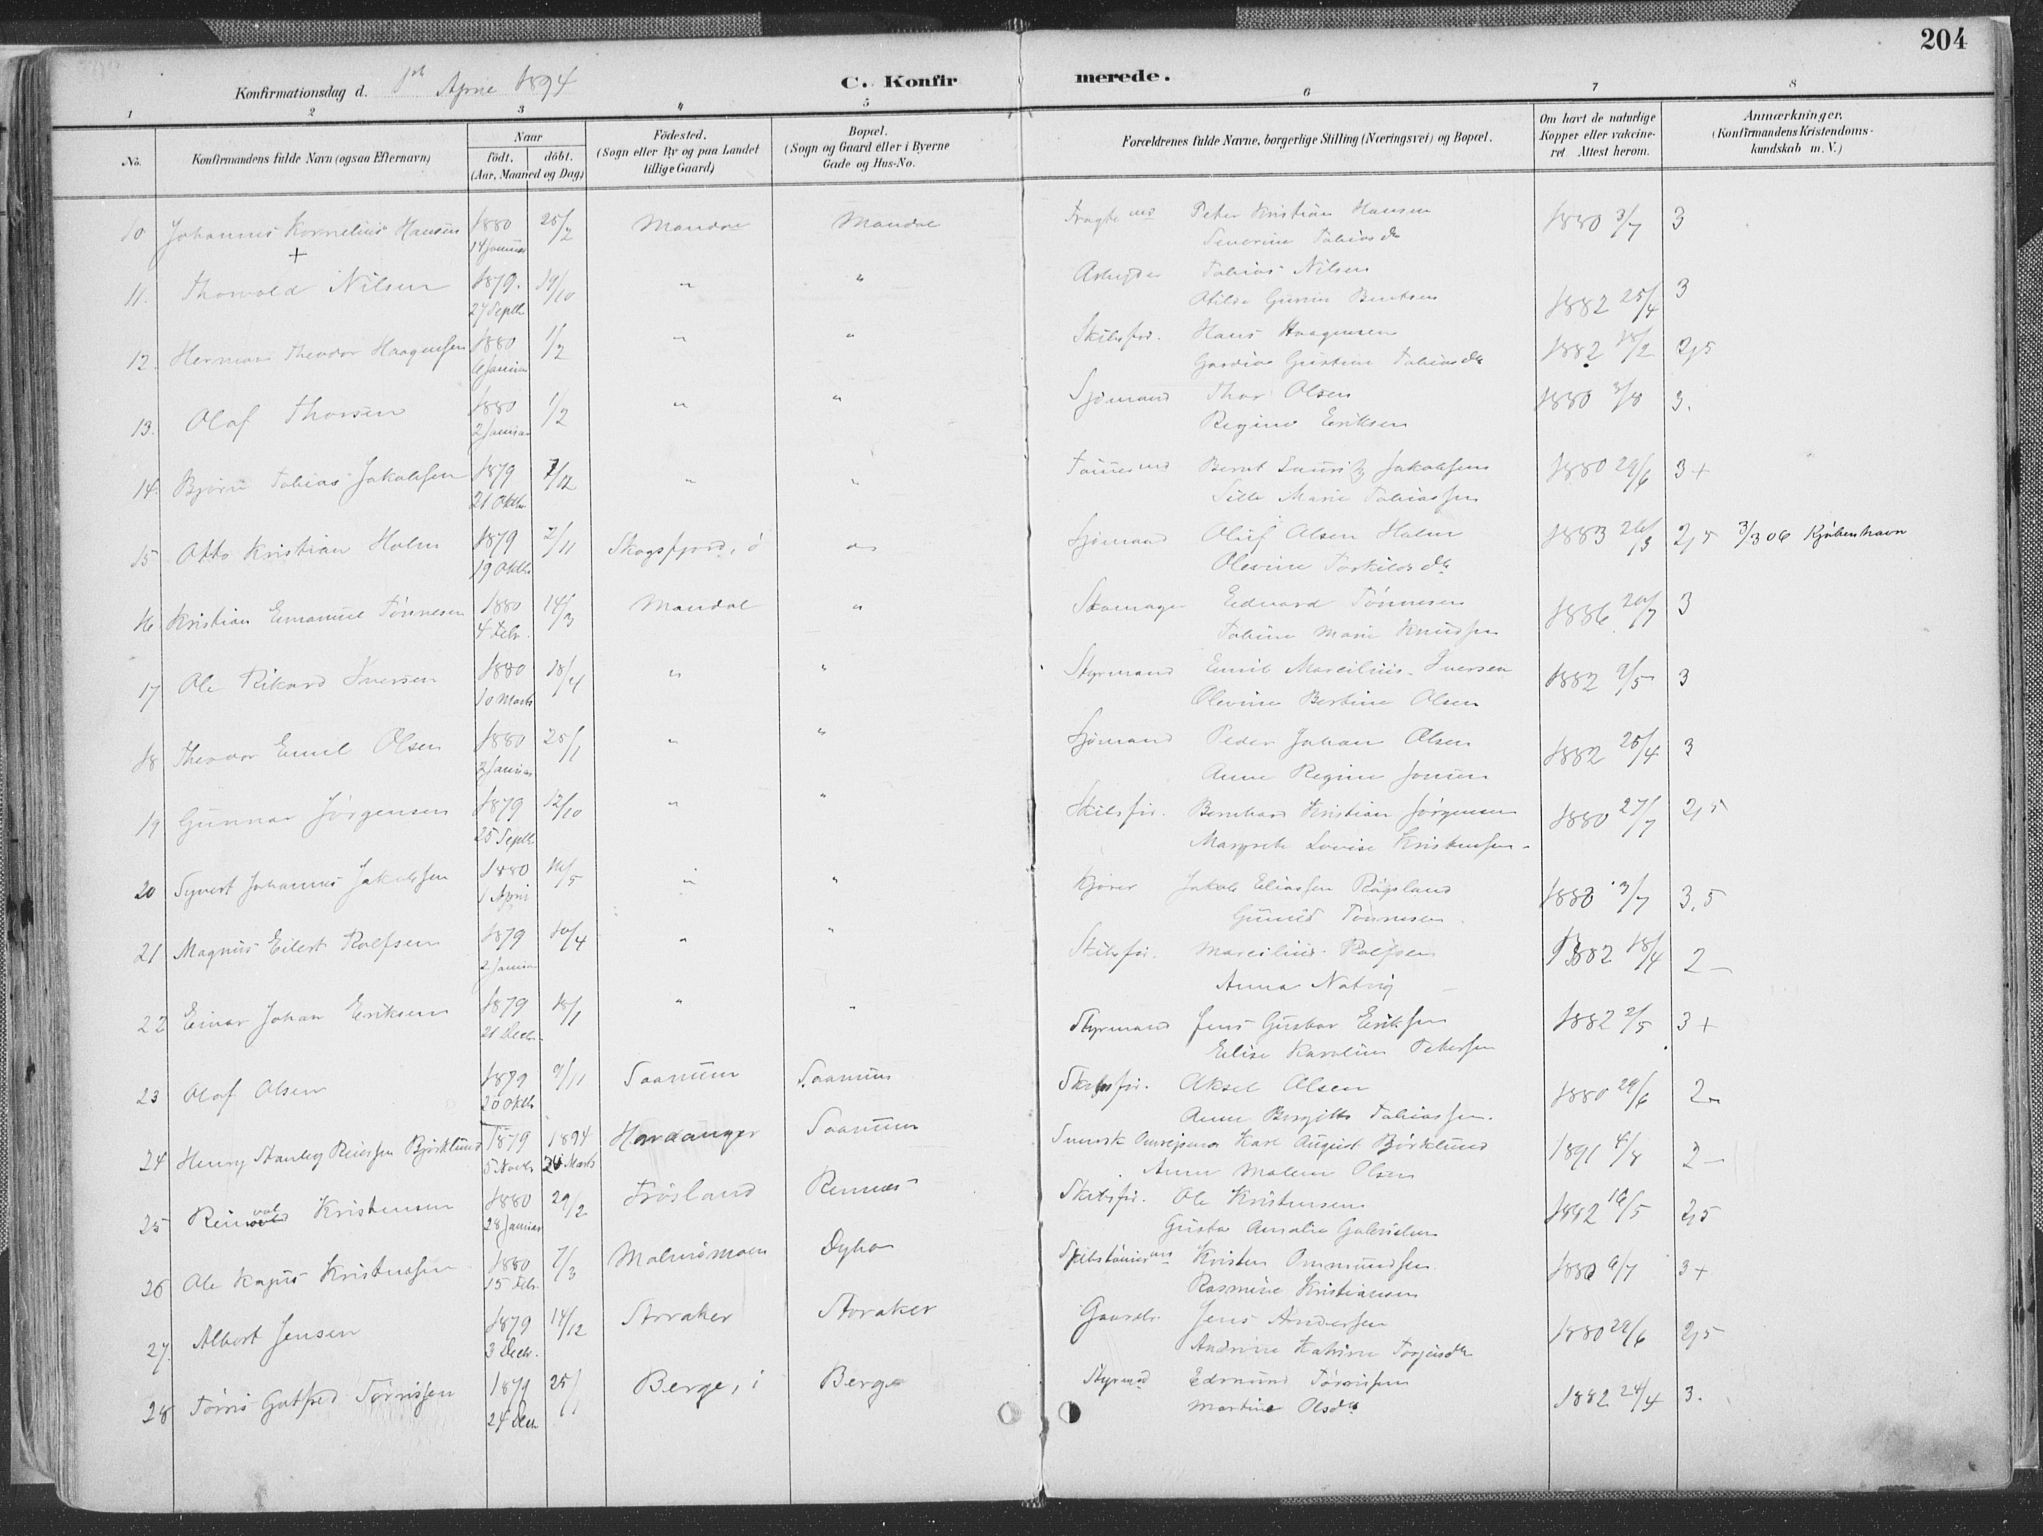 204
Konfirmationsdag d. 1ste April 1894
C. Konfirmerede.
1 2 3 4 5 6 7 8
No. Konfirmandens fulde Navn (ogsaa Efternavn) Naar født. døbt. (Aar, Maaned og Dag) Fødested. (Sogn eller By og paa Landet tillige Gaard) Bopæl. (Sogn og Gaard eller i Byerne Gade og Hus-No. Forældrenes fulde Navne, borgerlige Stilling (Næringsvei) og Bopæl. Om havt de naturlige Kopper eller vakcineret. Attest herom. Anmærkninger. (Konfirmandens Kristendomskundskab m. V.)
10 Johannes Kornelius Hansen 1880 25/2 Mandal Mandal Peter Kristian Hansen 1880 3/7 3
+ 14 Januar Severine Tobiasdtr
11. Thorvald Nilsen 1879. 19/10 " " Arbeyder Tobias Nilsen
27 Septb. Otilde Gurine Bentsen 1882 25/4 3
12. Herman Theodor Haagensen 1880 1/2 " " Skibsfør. Hans Haagensen 1882 18/2 2,5
6 Januar Gustine Tobiasdtr
13. Olaf Thorsen 1880 1/2 " " Sjømand Thor Olsen 1880 3/8 3.
2 Januar Regine Eriksen
14. Bjørn Tobias Jakobsen 1879 7/12 " " Bernt Lauritz Jakobsen 1880 29/6 3+
21 Oktbr. Sille Marie Tobiassen
15 Otto Kristian Holm 1879 2/11 Skogsfjord, ø Sjømand Oluf Olsen Holm 1883 26/3 2,5 3/3 06 Kjøbenhavn
19 Oktbr. Olevine Torkildsdtr
16 Kristian Emanuel Tønnesen 1880 14/3 Mandal " Skomager Edvard Tønnesen 1886 20/7 3
4 Febr. Tobine Marie Knudsen
17 Ole Rikard Iversen 1880 18/4 " " Styrmand Emil Marcilius Iversen 1882 2/5 3
10 Marts Olevine Bertine Olsen
18 Theodor Emil Olsen 1880 25/1 " " Sjømand Peder Johan Olsen 1882 25/4 3
2 Januar Anne Regine Jonsen
19 Gunnar Jørgensen 1879 12/10 " " Skibsfør. Bernhard Kristian Jørgensen 1880 27/7 2,5
25 Septb. Margrete Lovise Kristensen
20 Syvert Johannes Jakobsen 1880 16/5 " " Kjører Jakob Eliassen Røgsland 1880 3/7 3,5
1 April Gunild Tønnesen
21 Magnus Eilert Rolfsen 1879 10/4 " " Skibsfør. Marcilius Rolfsen 1882 18/4 2 –
2 Januar Anna Natvig
22 Einar Johan Eriksen 1879 18/1 " " Styrmand Jens Gustav Eriksen 1882 2/5 3+
21 Decbr. Elise Karoline Petersen
23 Olaf Olsen 1879 9/11 Saanum Saanum Skibsfør. Aksel Olsen 1880 29/6 2–
20 Oktbr. Anne Bergitte Tobiassen.
24 Henry Stanley Reiersen Bjørklund 1879 1894 Hardanger Saanum Svensk Karl August Bjørklund 1891 4/8 2 –
5 Novbr. 26 Marts Anne Malene Olsen
25 Reinval Kristensen 1880 29/2 Frøsland Rennes Skibsfør. Ole Kristensen 1882 16/5 2,5
28 Januar Gusta Amalie Gabrielsen
26 Ole Kajus Kristensen 1880 7/3 Malmømoen Dybo Kristen Ommundsen 1880 6/7 3+
15 Febr. Rasmine Kristiansen
27. Albert Jensen 1879 14/12 Storaker Storaker Gaardbr. Jens Andersen 1880 29/6 2,5
3 Decbr. Andrine Katrine Torjusdtr
28 Tørris Gotfred Tørrissen 1879 25/1 Berge, i Berge Styrmd Edmund Tørrissen 1882 24/4 3.
24 Decbr Martine Olsdtr